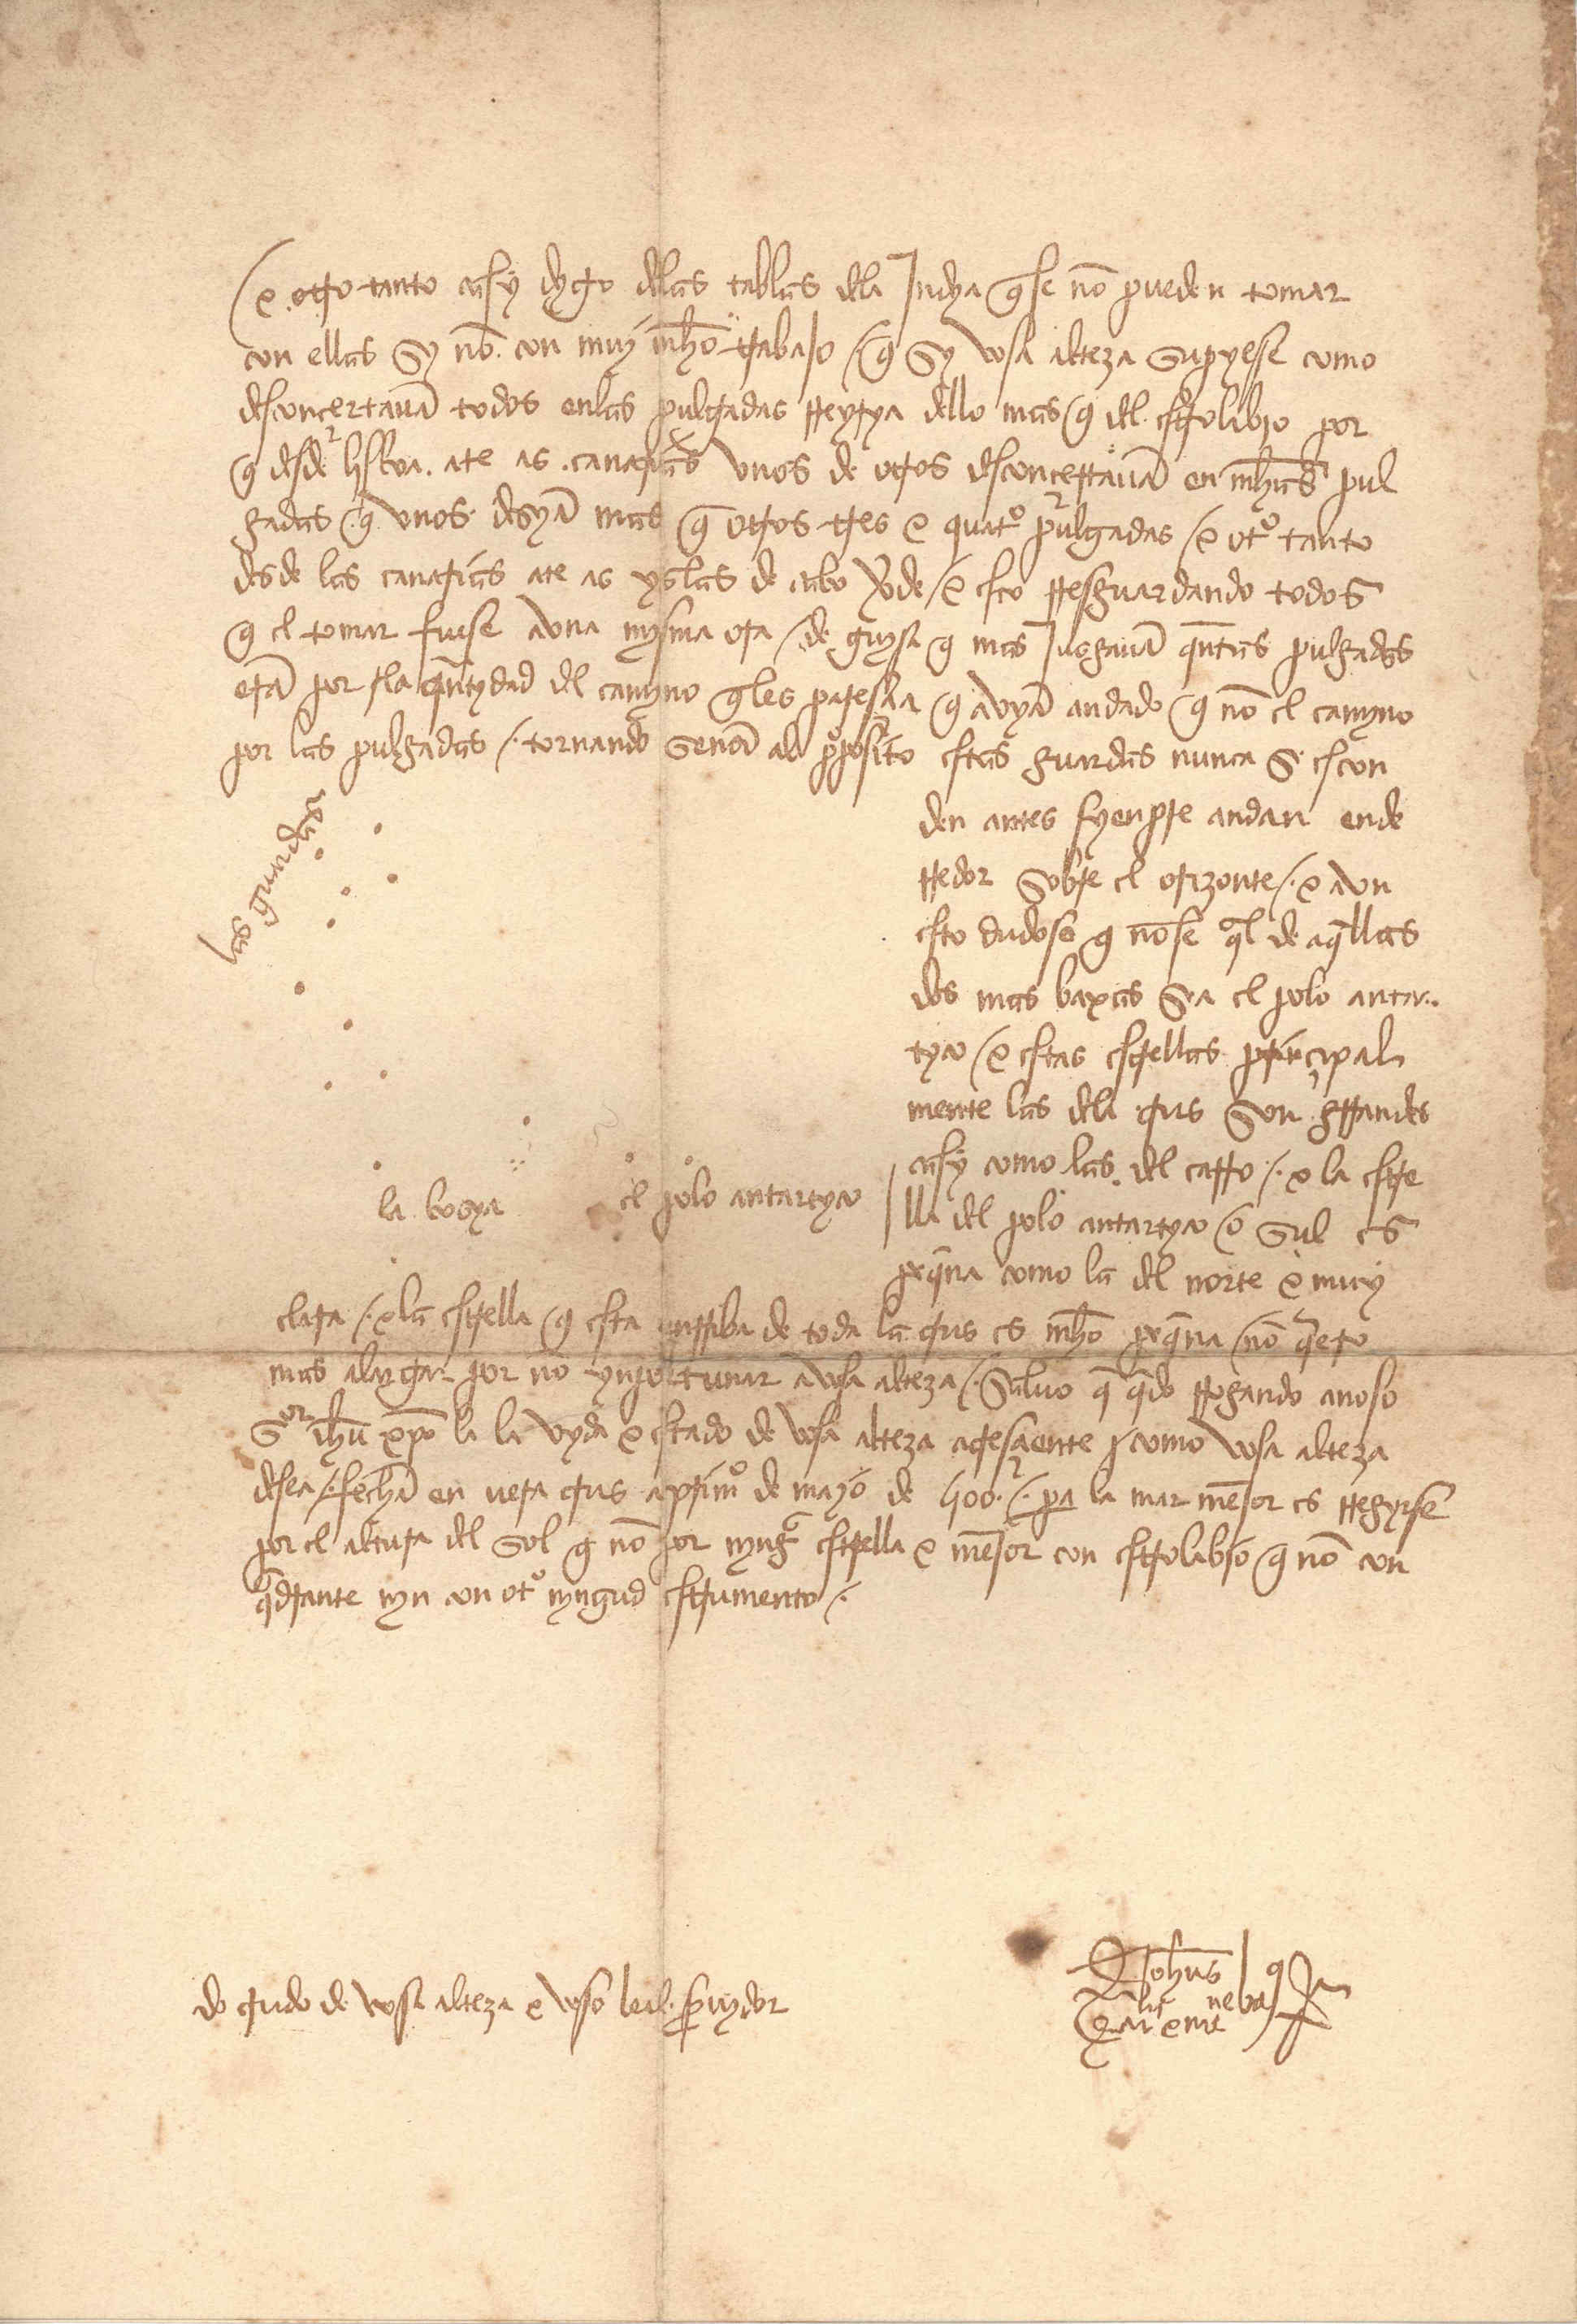 e otro tanto asy dygo delas tablas dela Jndya q̃ se nõ pueden tomar
con ellas sy nõ con muy mũho trabaJo / q̃ sy vosa alteza supyese como
desconcertavã todos enlas pulgadas rreyrya dello mas q̃ del estrolabio por
q̃ desde lisboa ate as canarias vnos de otros desconcertavã en mũhas pul
gadas q̃ vnos desyã mas q̃ otros tres e quatº pulgadas / e otº tanto
desde las canarias ate as yslas de cabo v̊de / e esto rresguardando todos
q̃ el tomar fuese avna mysma ora / de guysa q̃ mas Jusgavã q̃ntas pulgadas
erã por la q̃ntydad del camyno q̃les paresya q̃ avyã andado q̃ nõ el camyno
por las pulgadas /. tornando señor al p̊posito estas guardas nunca se escon
den antes syenpre andan ende
rredor sobre el orizonte /. e avn
esto dudoso q̃ nõ se q̃l de aq̃llas
dos mas baxas sea el polo antar
tyco / e estas estrellas principal
mente las dela crus son grrandes
asy como las del carro /. e la estre
lla del polo antartyco o sul es
peq̃na como la del norte e muy
clara /. e la estrella q̃ esta enrriba de toda la crus es mũho peq̃na / nõ q̃ero
mas alargar por nõ ynportunar avosa alteza /. salvo q̃ q̃do rrogando anoso
sor ihũ xpo la la vyda e estado de vosa alteza acresciente como vosa alteza
desea /. fecha en vera crus a primº de mayo de 500 /. pa la mar meJor es rregyrse
por el altura del sol q̃ nõ por nynga estrella e meJor con estrolabio q̃ nõ con
q̃drante nyn con otº nyngud estrumento /.
las guardas
la bosya
el polo antartyco
do criado de vosa alteza e voso leal servydor
Johañes
artium et medicine bachalarius